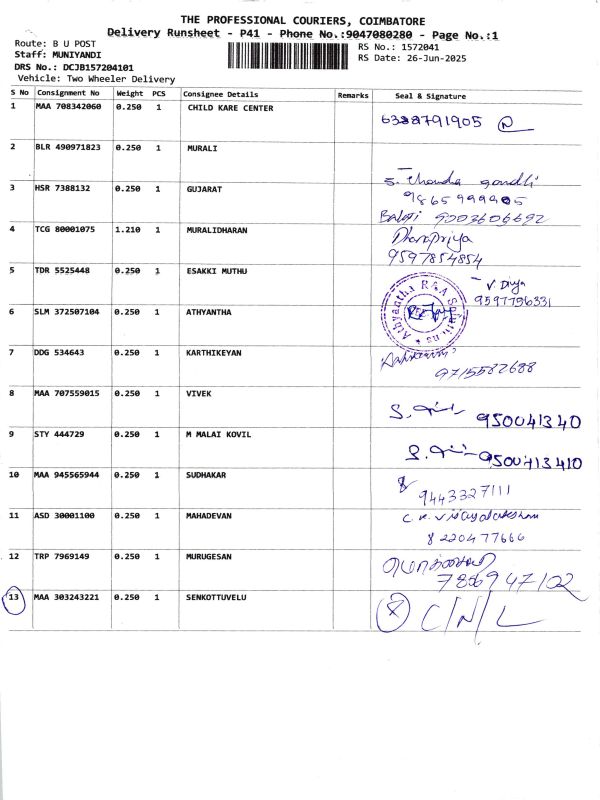 THE PROFESSIONAL COURIERS, COIMBATORE
Delivery Runsheet - P41 - Phone No.:9047080280 - Page No.:1
Route: B U POST
Staff: MUNIYANDI
DRS No.: DCJB157204101
Vehicle: Two Wheeler Delivery
RS No.: 1572041
RS Date: 26-Jun-2025
S No Consignment No Weight PCS Consignee Details Remarks Seal & Signature
1 MAA 708342060 0.250 1 CHILD KARE CENTER
6388791905
2 BLR 490971823 0.250 1 MURALI
3 HSR 7388132 0.250 1 GUJARAT
S. Chandra gandhi
9865999905
Balaji 9003606692
4 TCG 80001075 1.210 1 MURALIDHARAN
Dhanapriya
9597854854
5 TDR 5525448 0.250 1 ESAKKI MUTHU
V Divya
9597796331
6 SLM 372507104 0.250 1 ATHYANTHA
7 DDG 534643 0.250 1 KARTHIKEYAN
9715582688
8 MAA 707559015 0.250 1 VIVEK
950041340
9 STY 444729 0.250 1 M MALAI KOVIL
9500413410
10 MAA 945565944 0.250 1 SUDHAKAR
9443327111
11 ASD 30001100 0.250 1 MAHADEVAN
8220477666
12 TRP 7969149 0.250 1 MURUGESAN
7856947102
13 MAA 303243221 0.250 1 SENKOTTUVELU
C/N/L